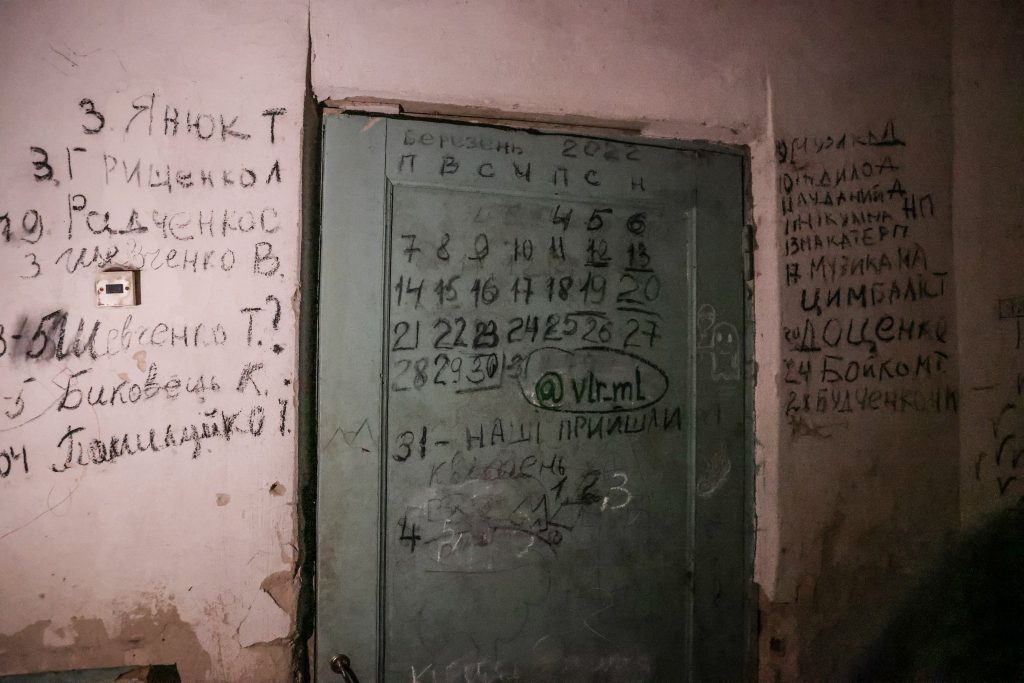 3. Янюк Т
3. Грищенко Л
19. Радченко С
3 Шевченко В.
3-5 Шевченко Т.?
5 Биковець К.
березень 2022
П В С Ч П С Н
4 5 6
7 8 9 10 11 12 13
14 15 16 17 18 19 20
21 22 23 24 25 26 27
28 29 30 31
@vlr_ml
31 - НАШІ ПРИЙШЛИ
квітень
1 2 3
4
9 МУЗИКА Д
МАКАТЕР П
17 МУЗИКА НА
ЦИМБАЛІСТ
20 ДОЦЕНКО
24 БОЙКО МТ
28 БУДЧЕНКО